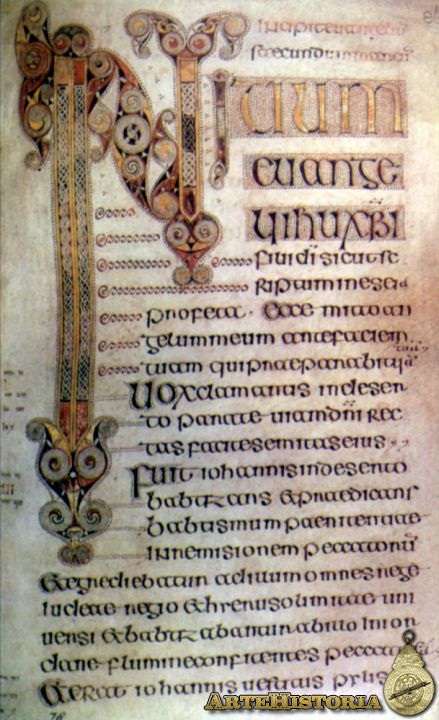 secundum
INITIUM
EUANGE
LII IHU XPI
filii dī sicut sc
riptum in esaia
profeta · ecce mitto an
gelum meum ante faciem
tuam qui praeparabit uiā
Uox clamantis in deser
to parate uiam dn̄i rec
tas facite semitas eius
Fuit iohannis in deserto
babtizans & praedicans
babtismum paenitentiae
in remisionem peccatorū
& egrediebatur ad illum omnes
iudeae regio & uni
uersi & babtizabantur ab illo in ior
dane flumine confitentes peccata
& erat iohannis uestitus pilis
ARTEHISTORIA